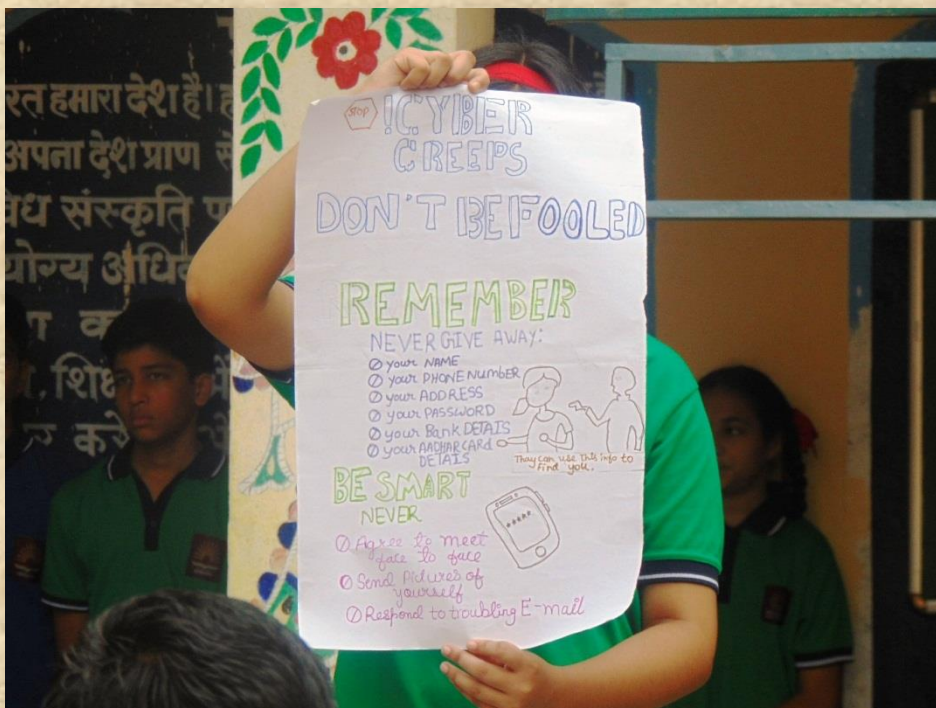 रत हमारा देश है।
अपना देश प्राण
संस्कृति
योग्य
STOP
!CYBER
CREEPS
DON'T BE FOOLED
REMEMBER
NEVER GIVE AWAY:
your NAME
your PHONE NUMBER
your ADDRESS
your PASSWORD
your Bank DETAILS
your AADHAR CARD
DETAILS
They can use this info to
find you.
BE SMART
NEVER
*****
Agree to meet
face to face
Send Pictures of
yourself
Respond to troubling E-mail